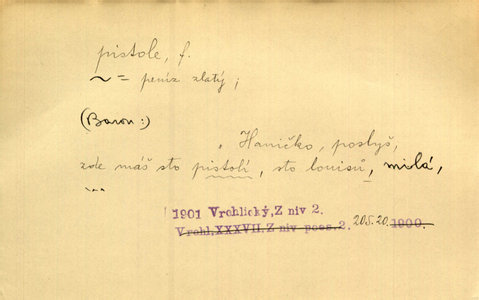 pistole, f.
~ = peníz zlatý;
(Baron:)
„ Haničko, poslyš,
zde máš sto pistolí, sto louisů, milá,
...
1901 Vrchlický, Z niv 2.
Vrchl. XXXVII. Z niv poes. 2. 20.5.20. 1900.